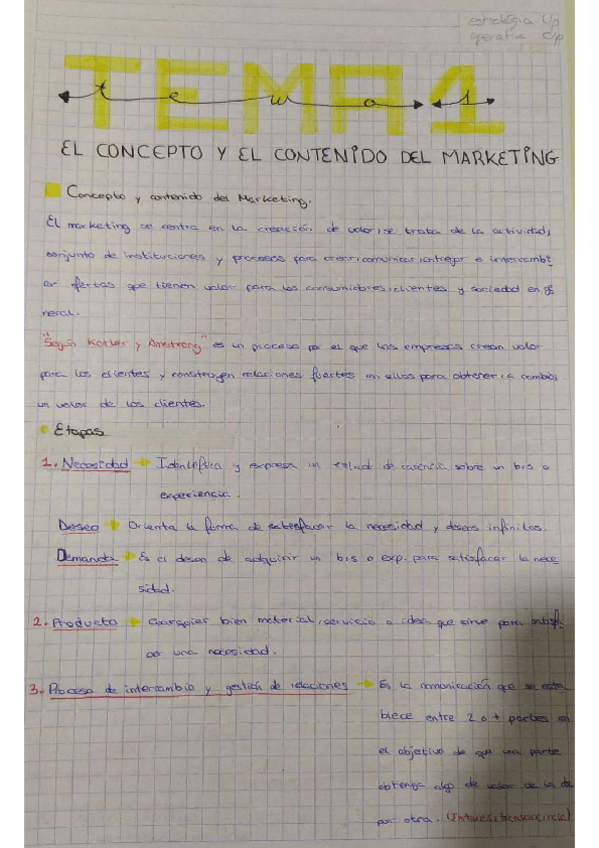 estratégica L/p
operativa C/p
TEMA 1
tema 1
EL CONCEPTO Y EL CONTENIDO DEL MARKETING
Concepto y contenido del Marketing.
El marketing se centra en la creación de valor, se trata de la actividad,
conjunto de instituciones y procesos para crear, comunicar, entregar e intercambi
ar ofertas que tienen valor para los consumidores, clientes y sociedad en ge
neral.
"Según Kotler y Amstrong" es un proceso por el que las empresas crean valor
para los clientes y construyen relaciones fuertes con ellos para obtener a cambio
un valor de los clientes.
Etapas
1. Necesidad → Identifica y expresa un estado de carencia sobre un b/s o
experiencia.
Deseo → Orienta la forma de satisfacer la necesidad y deseos infinitos.
Demanda → Es el deseo de adquirir un b/s o exp. para satisfacer la nece
sidad.
2. Producto → Cualquier bien material, servicio o idea que sirve para satisf
acer una necesidad.
3. Proceso de intercambio y gestión de relaciones → Es la comunicación que se esta
blece entre 2 o + partes con
el objetivo de que una parte
obtenga algo de valor de la
por otra.